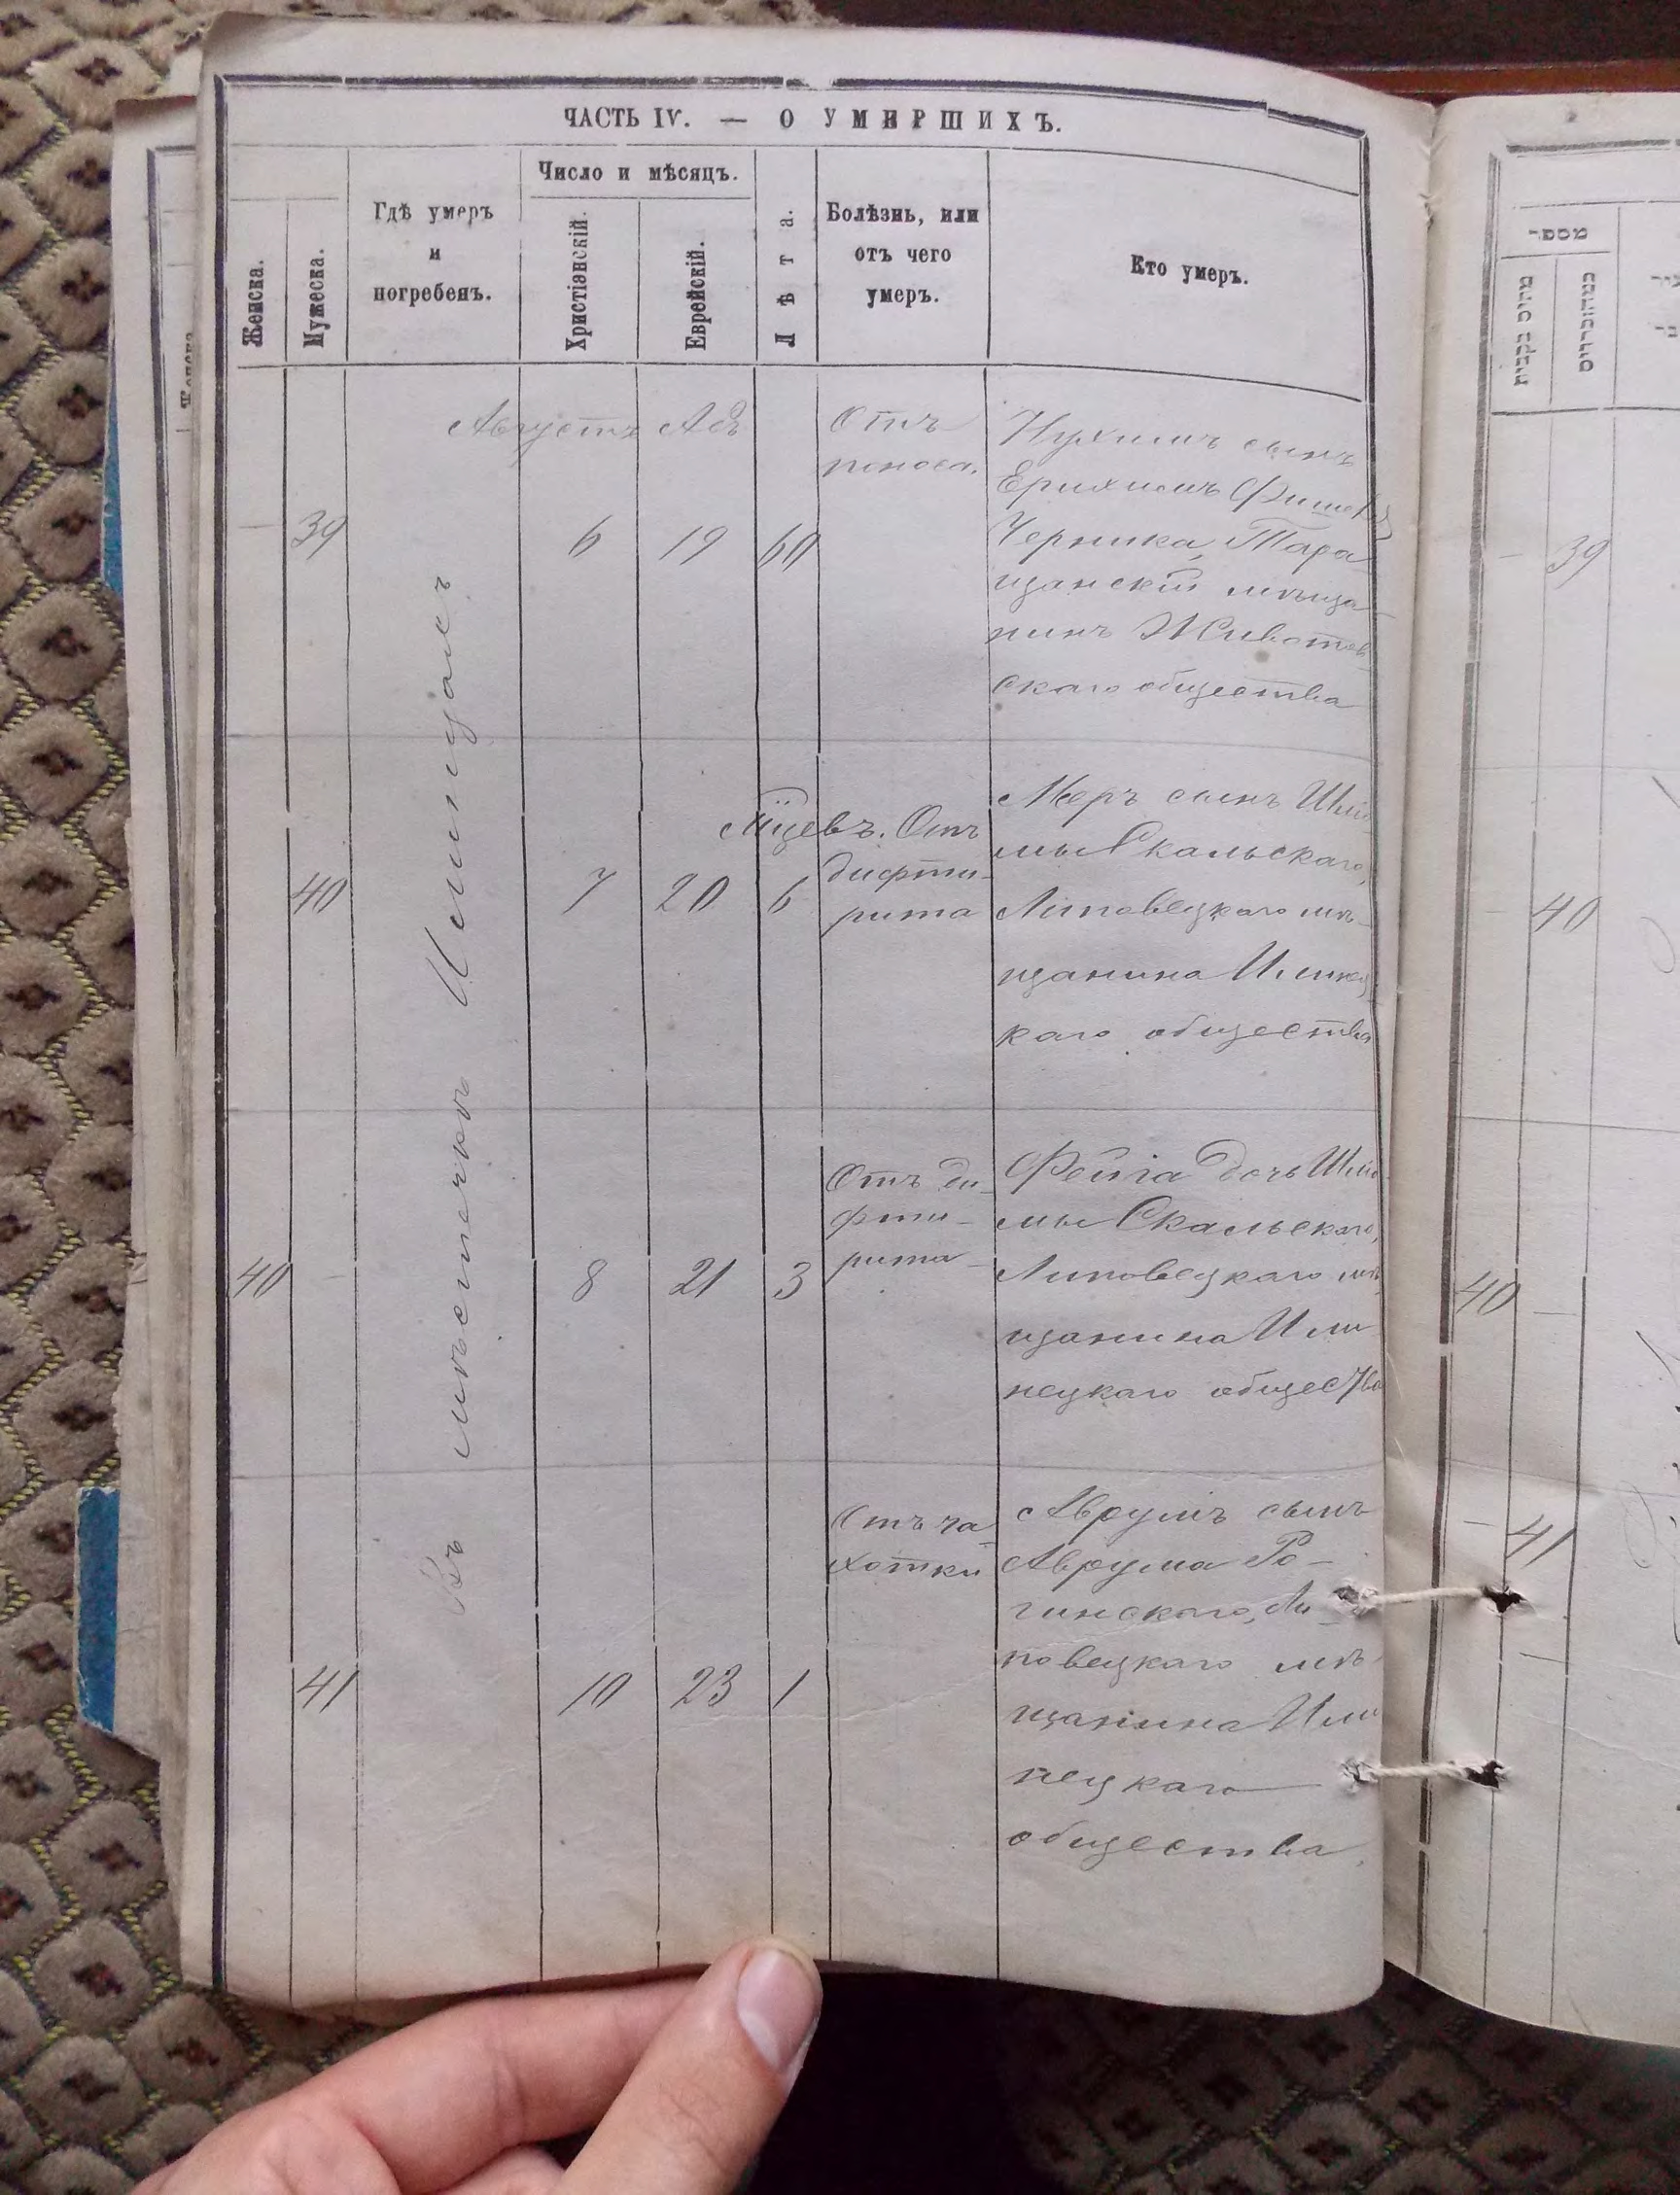 ЧАСТЬ IV. — О УМЕРШИХЪ.
Женска.
Мужеска.
Гдѣ умеръ
и
погребенъ.
Число и мѣсяцъ.
Христіэнскій.
Еврейскій.
Лѣта.
Болѣзнь, или
отъ чего
умеръ.
Кто умеръ.
Въ мѣстечкѣ Илинцахъ
Августъ Абъ
— 39 6 19 60
Отъ
поноса.
Нухимъ сынъ
Ерихимъ
Черника, Тара
щанскій мѣща
нинъ Животов
скаго общества
40 7 20 6
Мцевъ. Отъ
дифти-
рита
Меръ сынъ Шлио
мы Скальскаго,
Липовецкаго мѣ-
щанина Илинец
каго общества
40 — 8 21 3
Отъ ди-
фти-
рита
Фейга дочь Шлио
мы Скальскаго,
Липовецкаго мѣ
щанина Или
нецкаго общества
41 10 23 1
Отъ ча
хотки
Аврумъ сынъ
Аврума Ро-
гинскаго, Ли
повецкаго мѣ
щанина Или
нецкаго
общества.
מספר
— 39
— 40
40 —
— 41